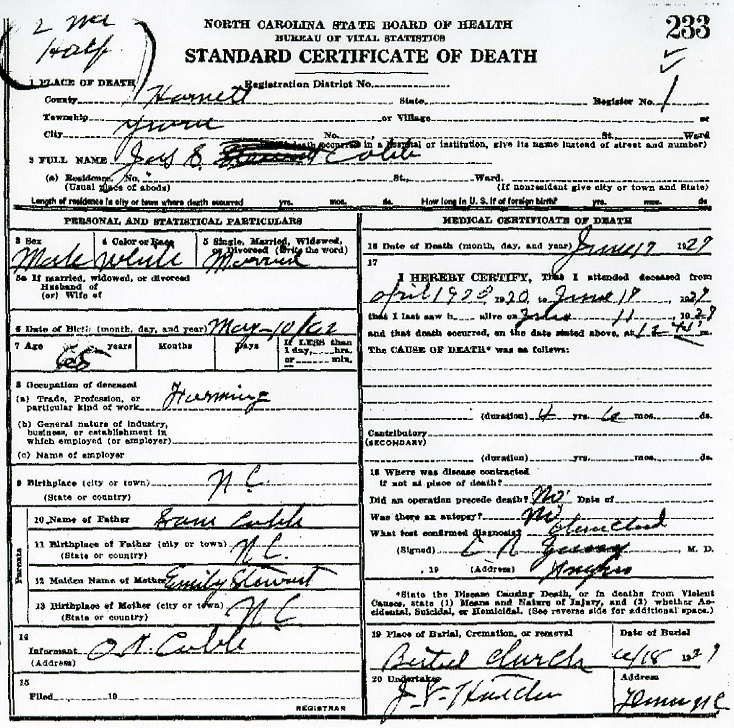 2 Me
Half
NORTH CAROLINA STATE BOARD OF HEALTH
233
BUREAU OF VITAL STATISTICS
STANDARD CERTIFICATE OF DEATH
1 PLACE OF DEATH Registration District No.
County Harnett State Register No. 1
Township or Village or
City No. St. Ward
death occurred in a hospital or institution, give its name instead of street and number)
2 FULL NAME S. Cobb
(a) Residence, No. St., Ward.
(Usual place of abode) (If nonresident give city or town and State)
Length of residence in city or town where death occurred yrs. mos. ds. How long in U. S. if of foreign birth? yrs. mos. ds.
PERSONAL AND STATISTICAL PARTICULARS
3 Sex 4 Color or Race 5 Single, Married, Widowed, or Divorced (Write the word)
Male White Married
5a If married, widowed, or divorced
Husband of
(or) Wife of
6 Date of Birth (month, day, and year) May-10/62
7 Age 65 years Months Days If LESS than
1 day, hrs.
or min.
8 Occupation of deceased
(a) Trade, Profession, or
particular kind of work Farming
(b) General nature of industry,
business, or establishment in
which employed (or employer)
(c) Name of employer
9 Birthplace (city or town) N C.
(State or country)
Parents
10 Name of Father Cobb
11 Birthplace of Father (city or town) N C.
(State or country)
12 Maiden Name of Mother Emily Stewart
13 Birthplace of Mother (city or town) N C
(State or country)
14
Informant Cobb
(Address)
15
Filed 19
REGISTRAR
MEDICAL CERTIFICATE OF DEATH
16 Date of Death (month, day, and year) June 17 1927
17
I HEREBY CERTIFY, That I attended deceased from
April 1923 1920 to June 17, 1927
that I last saw h alive on 11, 1927
and that death occurred, on the date stated above, at 12 m.
The CAUSE OF DEATH* was as follows:
(duration) 4 yrs. 6 mos. ds.
Contributory
(SECONDARY)
(duration) yrs. mos. ds.
18 Where was disease contracted
if not at place of death?
Did an operation precede death? No Date of
Was there an autopsy? No
What test confirmed diagnosis?
(Signed) C R Young M. D.
, 19 (Address) Angier
*State the Disease Causing Death, or in deaths from Violent
Causes, state (1) Means and Nature of Injury, and (2) whether Accidental, Suicidal, or Homicidal. (See reverse side for additional space.)
19 Place of Burial, Cremation, or removal Date of Burial
Church 6/18 1927
20 Undertaker Address
J.